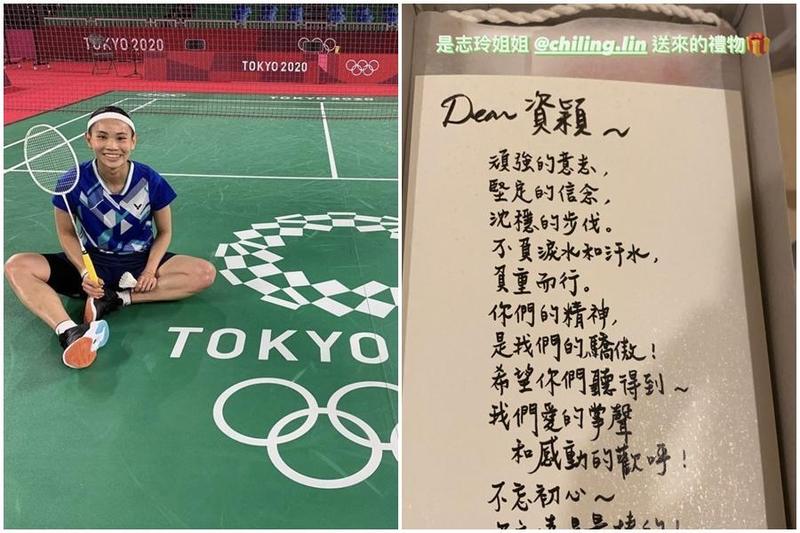 TOKYO 2020
TOKYO 2020
TOKYO 2020
TOKYO
是志玲姐姐 @chiling.lin 送來的禮物🎁
Dear 資穎~
頑強的意志,
堅定的信念,
沈穩的步伐。
不負淚水和汗水,
負重而行。
你們的精神,
是我們的驕傲!
希望你們聽得到~
我們愛的掌聲
和感動的歡呼!
不忘初心~